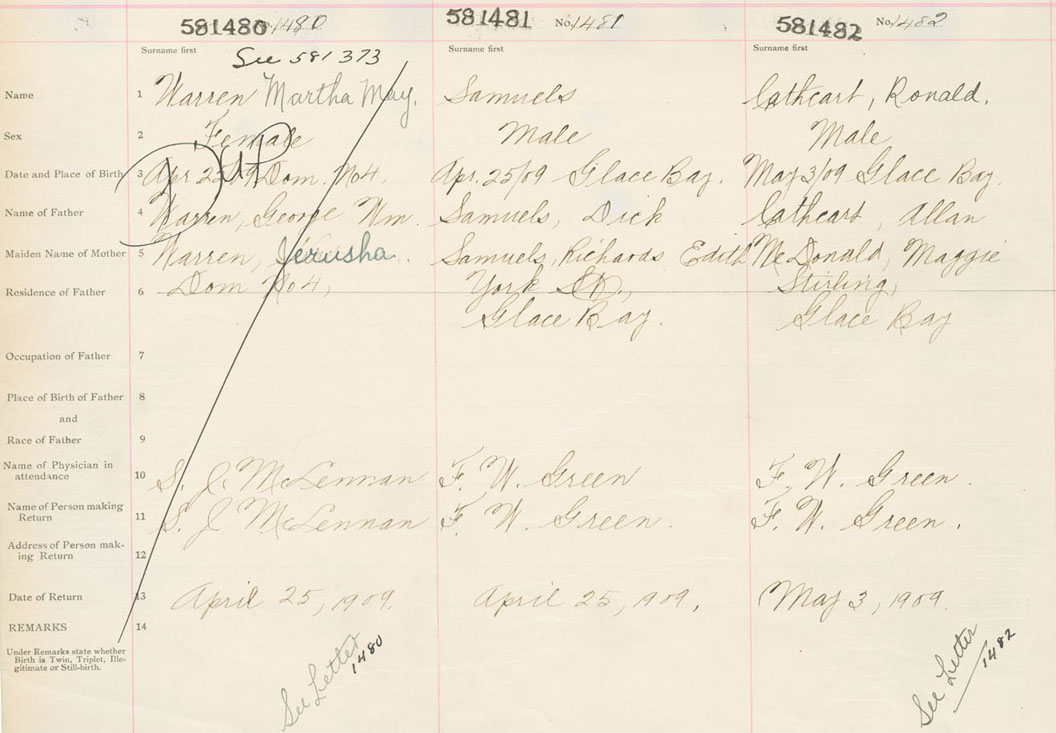 581480 No. 1480 581481 No. 1481 581482 No. 1482
Surname first Surname first Surname first
See 581373
Name 1 Warren Martha May. Samuels Cathcart, Ronald.
Sex 2 Female Male Male
Date and Place of Birth 3 Apr 25/09 Dom. No 4. Apr. 25/09 Glace Bay. May 3/09 Glace Bay.
Name of Father 4 Warren, George Wm. Samuels, Dick Cathcart, Allan
Maiden Name of Mother 5 Warren, Jerusha. Samuels, Richards Edith McDonald, Maggie
Residence of Father 6 Dom No 4, York St., Stirling,
Glace Bay. Glace Bay
Occupation of Father 7
Place of Birth of Father 8
and
Race of Father 9
Name of Physician in
attendance 10 S. J. McLennan F. W. Green F. W. Green.
Name of Person making
Return 11 S. J McLennan F. W. Green. F. W. Green.
Address of Person mak-
ing Return 12
Date of Return 13 April 25, 1909. April 25, 1909, May 3, 1909.
REMARKS 14
Under Remarks state whether
Birth is Twin, Triplet, Ille-
gitimate or Still-birth.
See Letter
1480
See Letter
1482